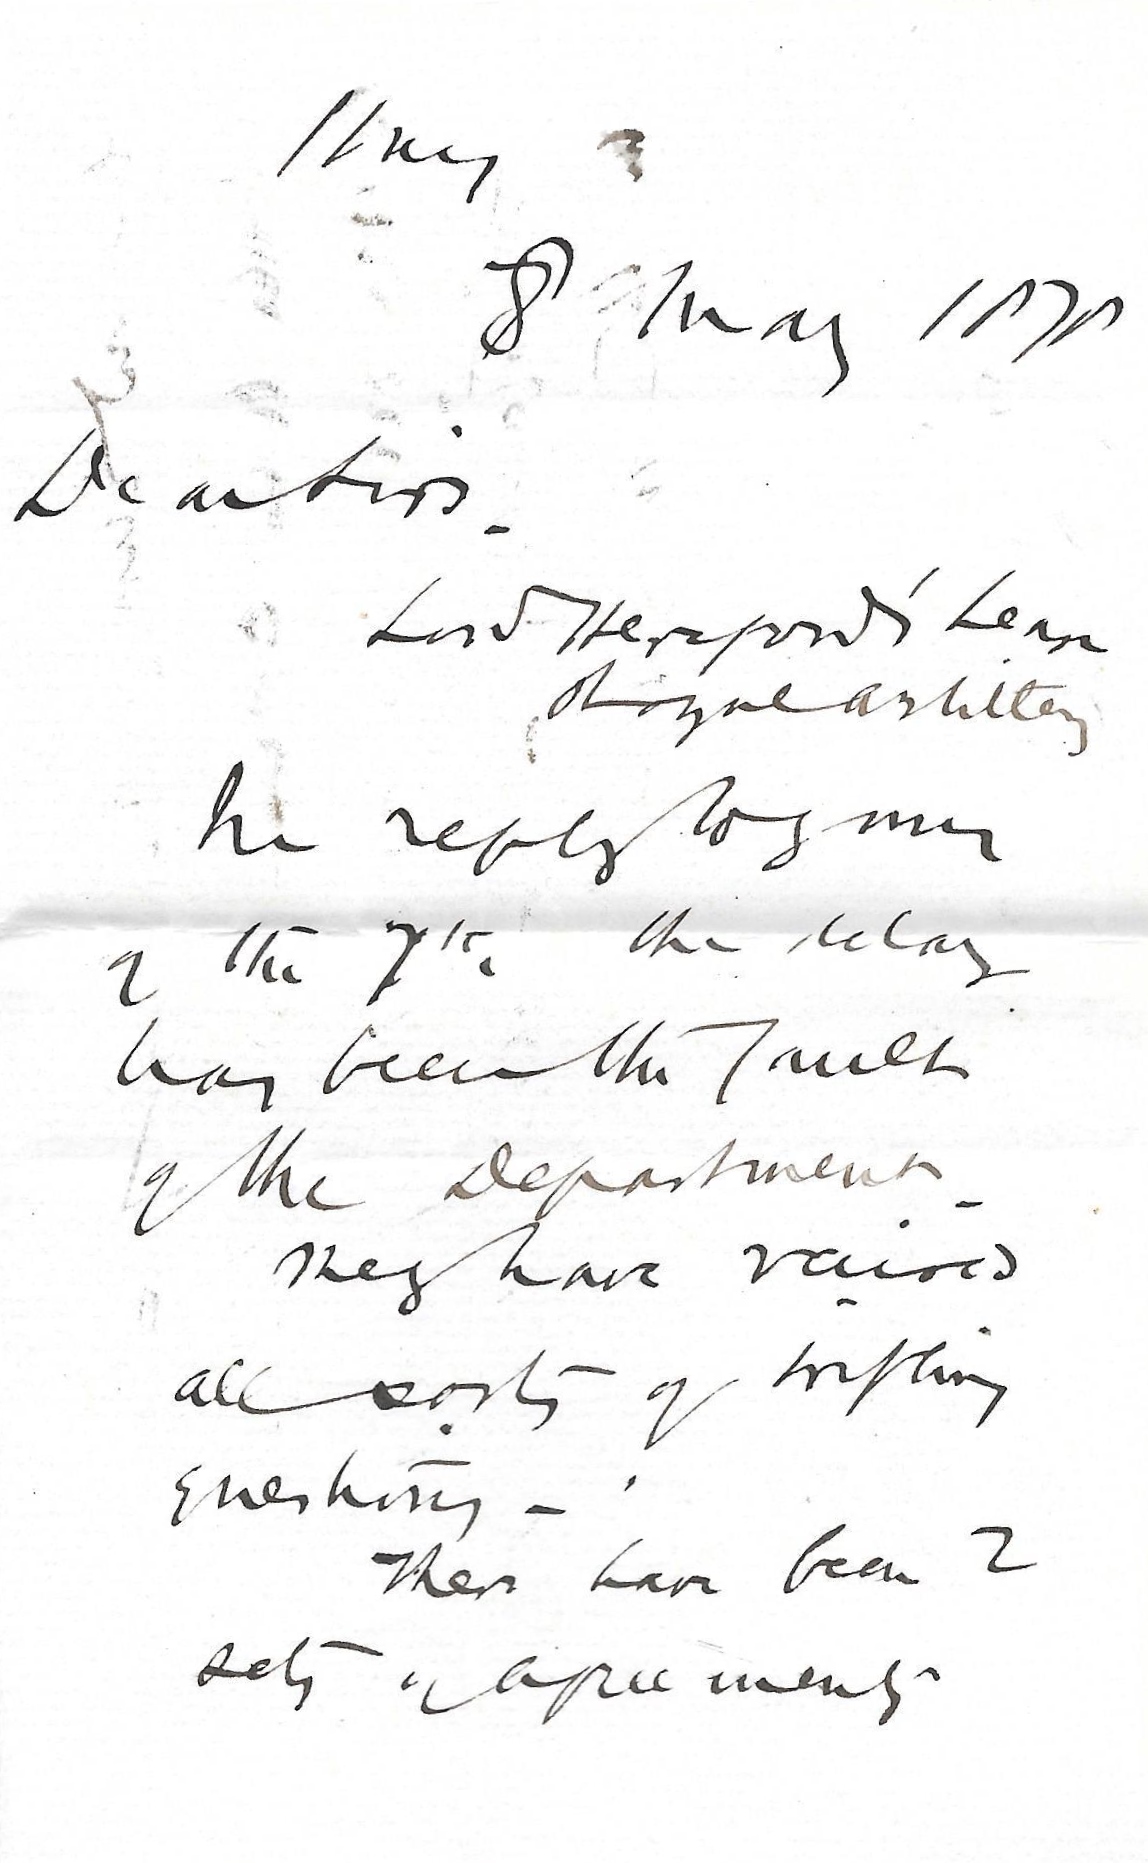 Hay
8 May 1878
Dear Sirs.
Lord Hereford's Lease
Royal Artillery
In reply to yours
of the 7th. the delay
has been the fault
of the Department.
They have raised
all sorts of trifling
questions -
There have been 2
sets of agreements